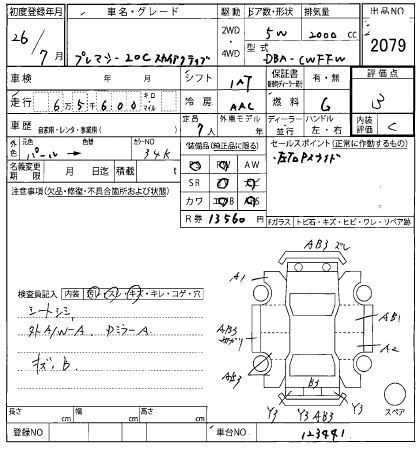 初度登録年月 車名・グレード 駆動 ドア数・形状 排気量 出品NO
26/7月 プレマシー 20C スカイアクティブ 2WD・4WD 5W 2000cc 2079
型式 DBA-CWFFW
車検 年 月 シフト IAT 保証書 有・無 評価点
走行 6万5千600 キロ・マイル 冷房 AAC 燃料 G 3
車歴 自家用・レンタ・事業用( ) 定員 7人 外車モデル 年 ディーラー 並行 ハンドル 左・右 内装評価 C
外色 元色 パール → 色替 カラーNO 34K
名義変更期限 月 日迄 積載 t
装備品(純正品に限る)
PS PW AW
SR
カワ
R券 13560円
セールスポイント(正常に作動するもの)
左右Pスライド
注意事項(欠品・修復・不具合箇所および状態)
Fガラス トビ石・キズ・ヒビ・ワレ・リペア跡
AB3 ズレ
A1
AB3
AB1
A2
AB3
B3
Y3 Y3 AB3 Y3
スペア
検査員記入 内装 汚レ・スレ・キズ・キレ・コゲ・穴
シートシミ
外A/W-A Dミラー A
キズ、B
長さ cm 幅 cm 高さ cm
登録NO 車台NO 123441